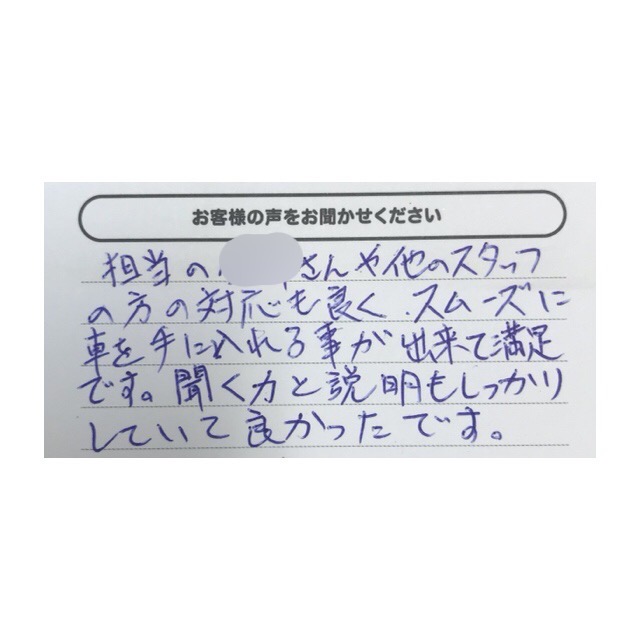 お客様の声をお聞かせください
担当の さんや他のスタッフ
の方の対応も良く、スムーズに
車を手に入れる事が出来て満足
です。聞く力と説明もしっかり
していて良かったです。